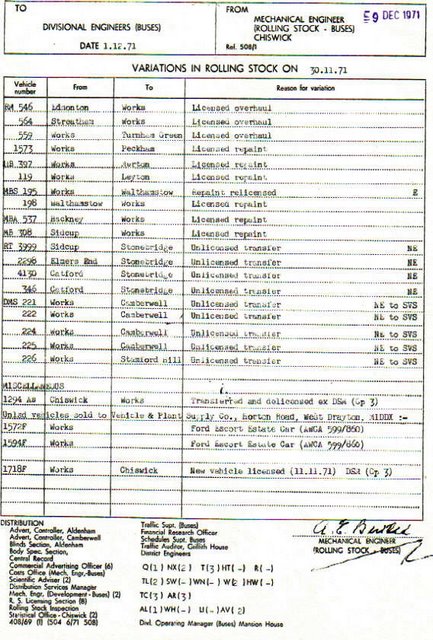 TO
FROM
DIVISIONAL ENGINEERS (BUSES)
DATE 1.12.71
MECHANICAL ENGINEER
(ROLLING STOCK - BUSES)
CHISWICK
Ref. 508/1
9 DEC 1971
VARIATIONS IN ROLLING STOCK ON 30.11.71
Vehicle number From To Reason for variation
RM 546 Edmonton Works Licensed overhaul
564 Streatham Works Licensed overhaul
559 Works Turnham Green Licensed overhaul
1573 Works Peckham Licensed repaint
397 Works Merton Licensed repaint
119 Works Leyton Licensed repaint
MBS 195 Works Walthamstow Repaint relicensed E
198 Walthamstow Works Licensed repaint
MBA 537 Hackney Works Licensed repaint
MB 308 Sidcup Works Licensed repaint
RT 3999 Sidcup Stonebridge Unlicensed transfer NE
2298 Elmers End Stonebridge Unlicensed transfer NE
4130 Catford Stonebridge Unlicensed transfer NE
346 Catford Stonebridge Unlicensed transfer NE
DMS 221 Works Camberwell Unlicensed transfer NE to SVS
222 Works Camberwell Unlicensed transfer NE to SVS
224 Works Camberwell Unlicensed transfer NE to SVS
225 Works Camberwell Unlicensed transfer NE to SVS
226 Works Stamford Hill Unlicensed transfer NE to SVS
MISCELLANEOUS
1294 As Chiswick Works Transferred and delicensed ex DSA (Gp 3)
Unlsd vehicles sold to Vehicle & Plant Supply Co., Horton Road, West Drayton, MIDDX :-
1572F Works Ford Escort Estate Car (AWGA 599/860)
1594F Works Ford Escort Estate Car (AWGA 599/860)
1718F Works Chiswick New vehicle licensed (11.11.71) DSA (Gp 3)
DISTRIBUTION
Advert. Controller, Aldenham
Advert. Controller, Camberwell
Blinds Section, Aldenham
Body Spec. Section,
Central Record
Commercial Advertising Officer (6)
Costs Office (Mech. Engr.-Buses)
Scientific Adviser (2)
Distribution Services Manager
Mech. Engr. (Development - Buses) (2)
R. S. Licensing Section (8)
Rolling Stock Inspection
Statistical Office - Chiswick (2)
408/69 (1) (504 6/71 508)
Traffic Supt. (Buses)
Financial Research Officer
Schedules Supt. Buses
Traffic Auditor, Griffith House
District Engineers
Q(1) NX(2) T(3) HT(-) R(-)
TL(2) SW(-) WN(-) W(2) HW(-)
TC(3) AR(3)
AL(1) WH(-) U(-) AV(2)
Divl. Operating Manager (Buses) Mansion House
MECHANICAL ENGINEER
(ROLLING STOCK - BUSES)